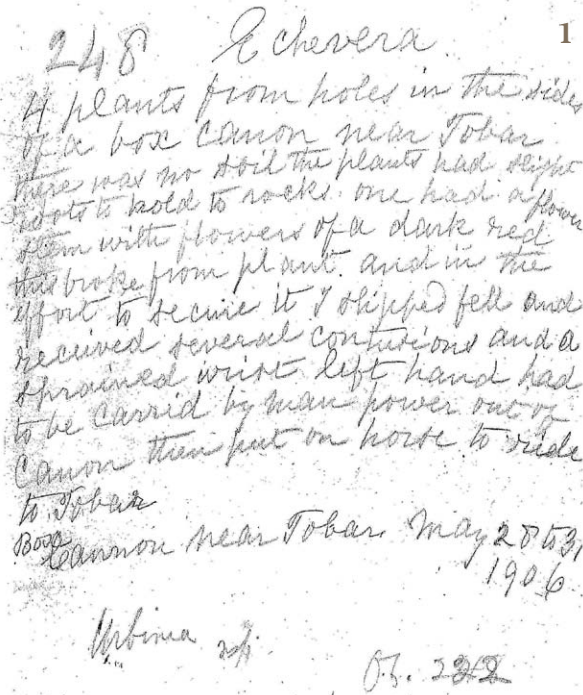 1
248 Echevera
4 plants from holes in the side
of a box Canon near Tobar
there was no soil the plants had slight
roots to hold to rocks. one had a flower
stem with flowers of a dark red
this broke from plant. and in the
effort to secure it I slipped fell and
received several contusions and a
sprained wrist left hand had
to be carrid by man power out of
Canon then put on horse to ride
to Tobar
Box
Cannon near Tobar. May 28 to 31
1906
Urbinia sp.
222